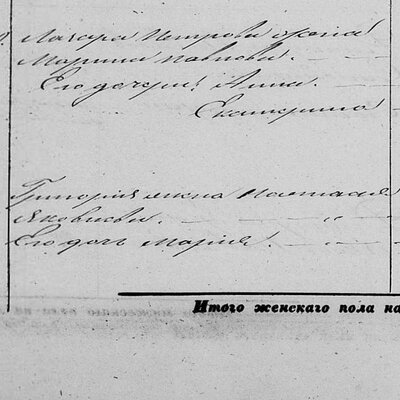 Лазара Петрова жена
Марина Павлова.
Его дочери: Анна.
Екатерина
Григория жена Настасия
Яковлева.
Его дочь Мария.
Итого женскаго пола на